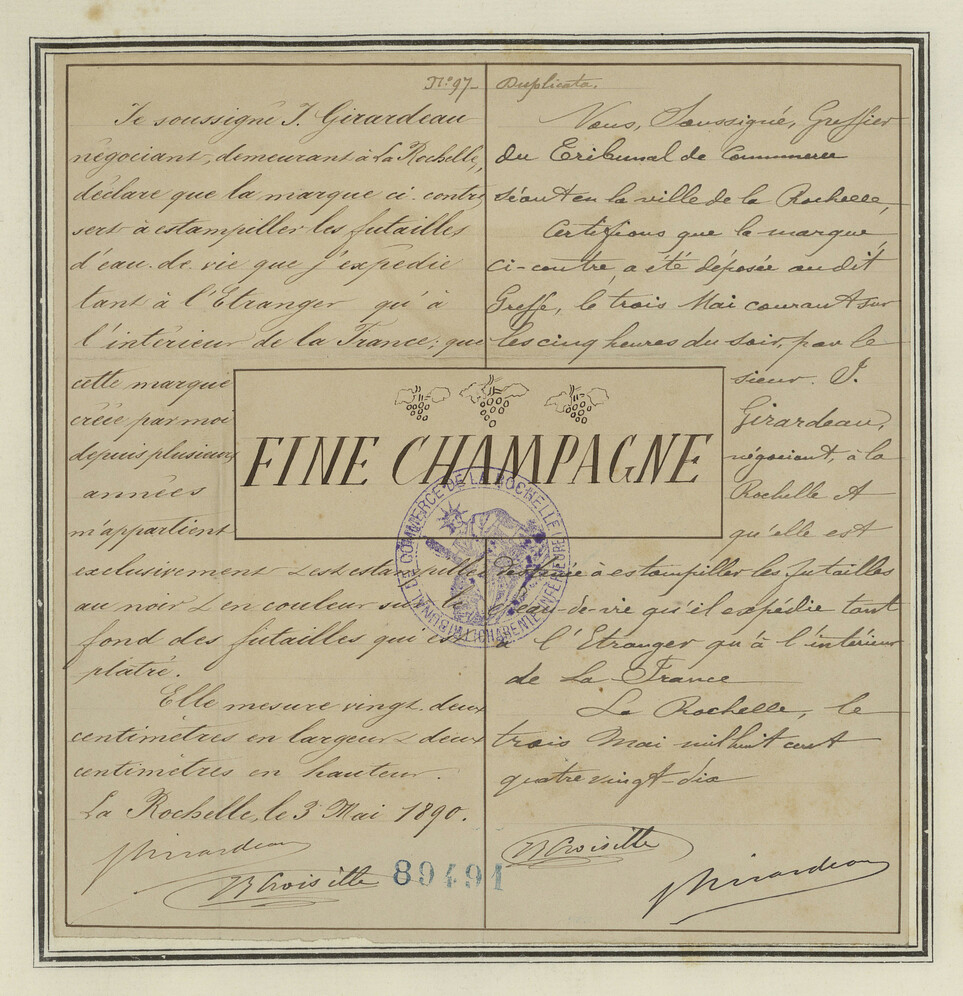 N° 97
Je soussigné J. Girardeau
négociant, demeurant à La Rochelle,
déclare que la marque ci-contre
sert à estampiller les futailles
d'eau-de-vie que j'expédie
tant à l'Etranger qu'à
l'intérieur de la France; que
cette marque
créée par moi
depuis plusieurs
années
m'appartient
exclusivement est estampillée
au noir & en couleur sur le
fond des futailles qui est
platré.
Elle mesure vingt-deux
centimètres en largeur & deux
centimètres en hauteur.
La Rochelle, le 3 Mai 1890.
JGirardeau
Croisille
Duplicata.
Nous, Soussigné, Greffier
du Tribunal de Commerce
séant en la ville de la Rochelle,
Certifions que la marque
ci-contre a été déposée au dit
Greffe, le trois Mai courant sur
les cinq heures du soir, par le
sieur J.
Girardeau,
négociant, à la
Rochelle &
qu'elle est
destinée à estampiller les futailles
d'eau-de-vie qu'il expédie tant
à l'Etranger qu'à l'intérieur
de La France
La Rochelle, le
trois Mai mil huit cent
quatre vingt-dix
Croisille
JGirardeau
FINE CHAMPAGNE
TRIBUNAL DE COMMERCE DE LA ROCHELLE
(CHARENTE INFERIEURE)
89491